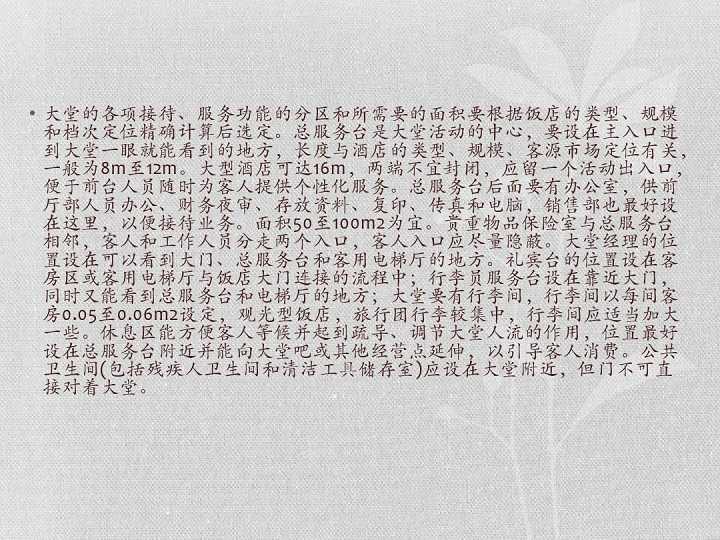 • 大堂的各项接待、服务功能的分区和所需要的面积要根据饭店的类型、规模
和档次定位精确计算后选定。总服务台是大堂活动的中心，要设在主入口进
到大堂一眼就能看到的地方，长度与酒店的类型、规模、客源市场定位有关，
一般为8m至12m。大型酒店可达16m，两端不宜封闭，应留一个活动出入口，
便于前台人员随时为客人提供个性化服务。总服务台后面要有办公室，供前
厅部人员办公、财务夜审、存放资料、复印、传真和电脑，销售部也最好设
在这里，以便接待业务。面积50至100m2为宜。贵重物品保险室与总服务台
相邻，客人和工作人员分走两个入口，客人入口应尽量隐蔽。大堂经理的位
置设在可以看到大门、总服务台和客用电梯厅的地方。礼宾台的位置设在客
房区或客用电梯厅与饭店大门连接的流程中；行李员服务台设在靠近大门，
同时又能看到总服务台和电梯厅的地方；大堂要有行李间，行李间以每间客
房0.05至0.06m2设定，观光型饭店，旅行团行李较集中，行李间应适当加大
一些。休息区能方便客人等候并起到疏导、调节大堂人流的作用，位置最好
设在总服务台附近并能向大堂吧或其他经营点延伸，以引导客人消费。公共
卫生间(包括残疾人卫生间和清洁工具储存室)应设在大堂附近，但门不可直
接对着大堂。